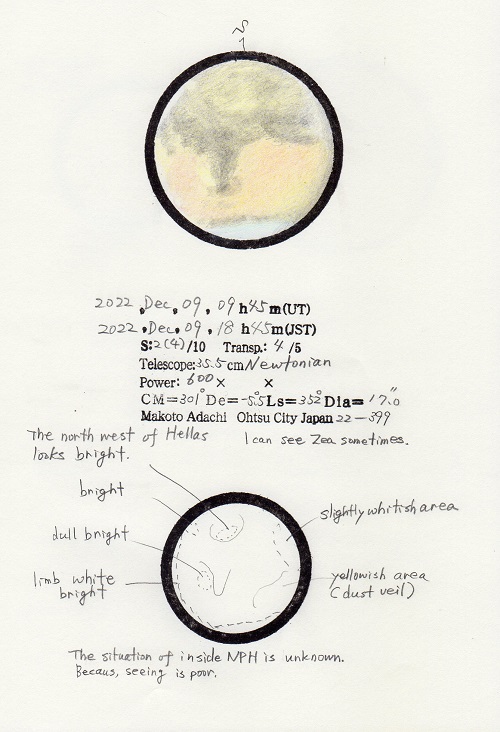 S
2022, Dec, 09, 09 h45m(UT)
2022, Dec, 09, 18 h45m(JST)
S:2(4)/10 Transp.: 4/5
Telescope:35.5cm Newtonian
Power: 600× ×
CM=301° De=-5.5 Ls=352° Dia=17.0"
Makoto Adachi Ohtsu City Japan 22-399
The north west of Hellas
looks bright.
I can see Zea sometimes.
bright
slightly whitish area
dull bright
limb white
bright
yellowish area
(dust veil)
The situation of inside NPH is unknown.
Becaus, seeing is poor.